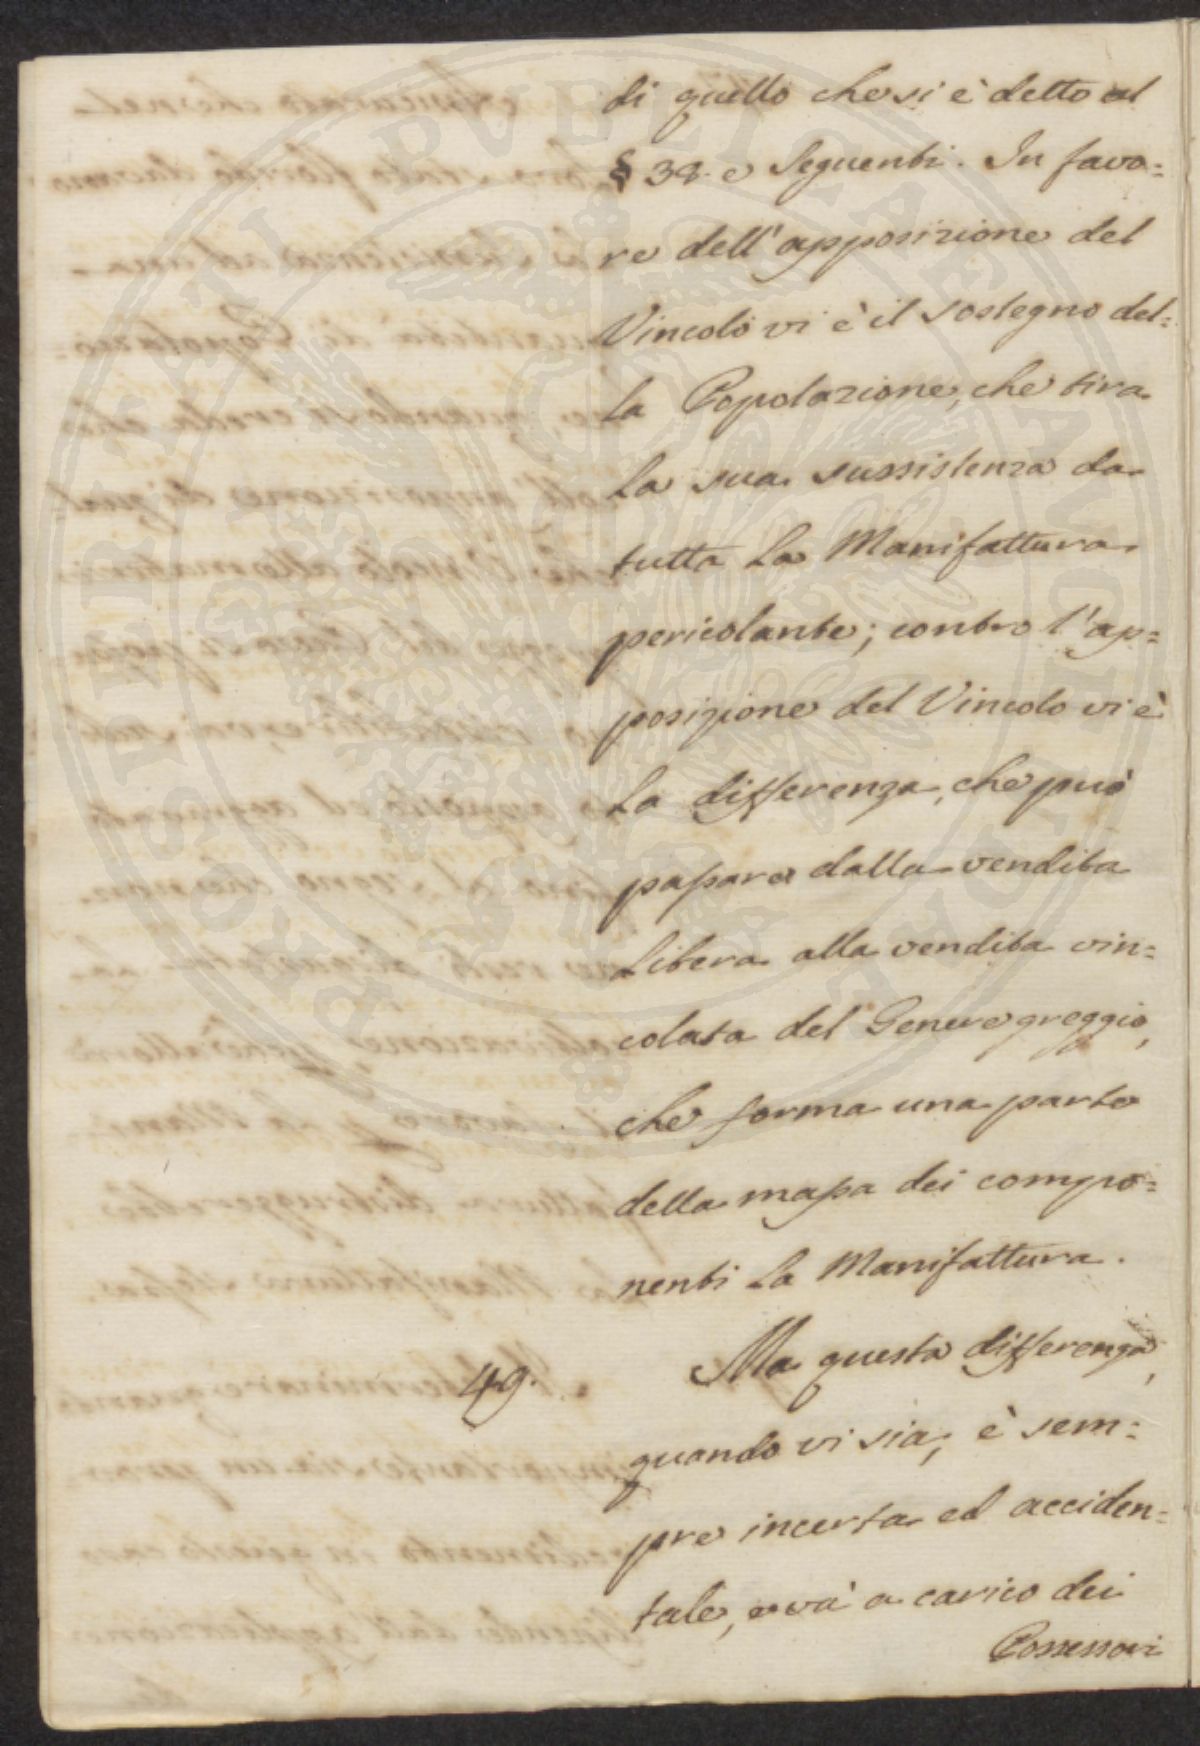 di quello che si è detto al
§ 38. e Seguenti. In favo=
re dell'apposizione del
Vincolo vi è il sostegno del=
la Popolazione, che tira
la sua sussistenza da
tutta la Manifattura
pericolante; contro l'ap=
posizione del Vincolo vi è
la differenza, che può
passare dalla vendita
libera alla vendita vin=
colata del Genere greggio,
che forma una parte
della massa dei compo=
nenti la Manifattura.
49. Ma questa differenza,
quando vi sia, è sem=
pre incerta ed acciden=
tale, e và a carico dei
Possessori
PROSPERITATI PVBLICAE AVGENDAE